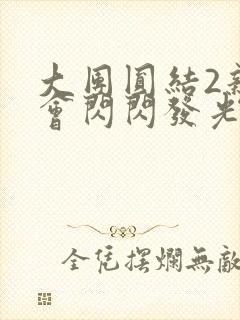 大團圓結2
會閃閃發光
全凭摆爛無敵